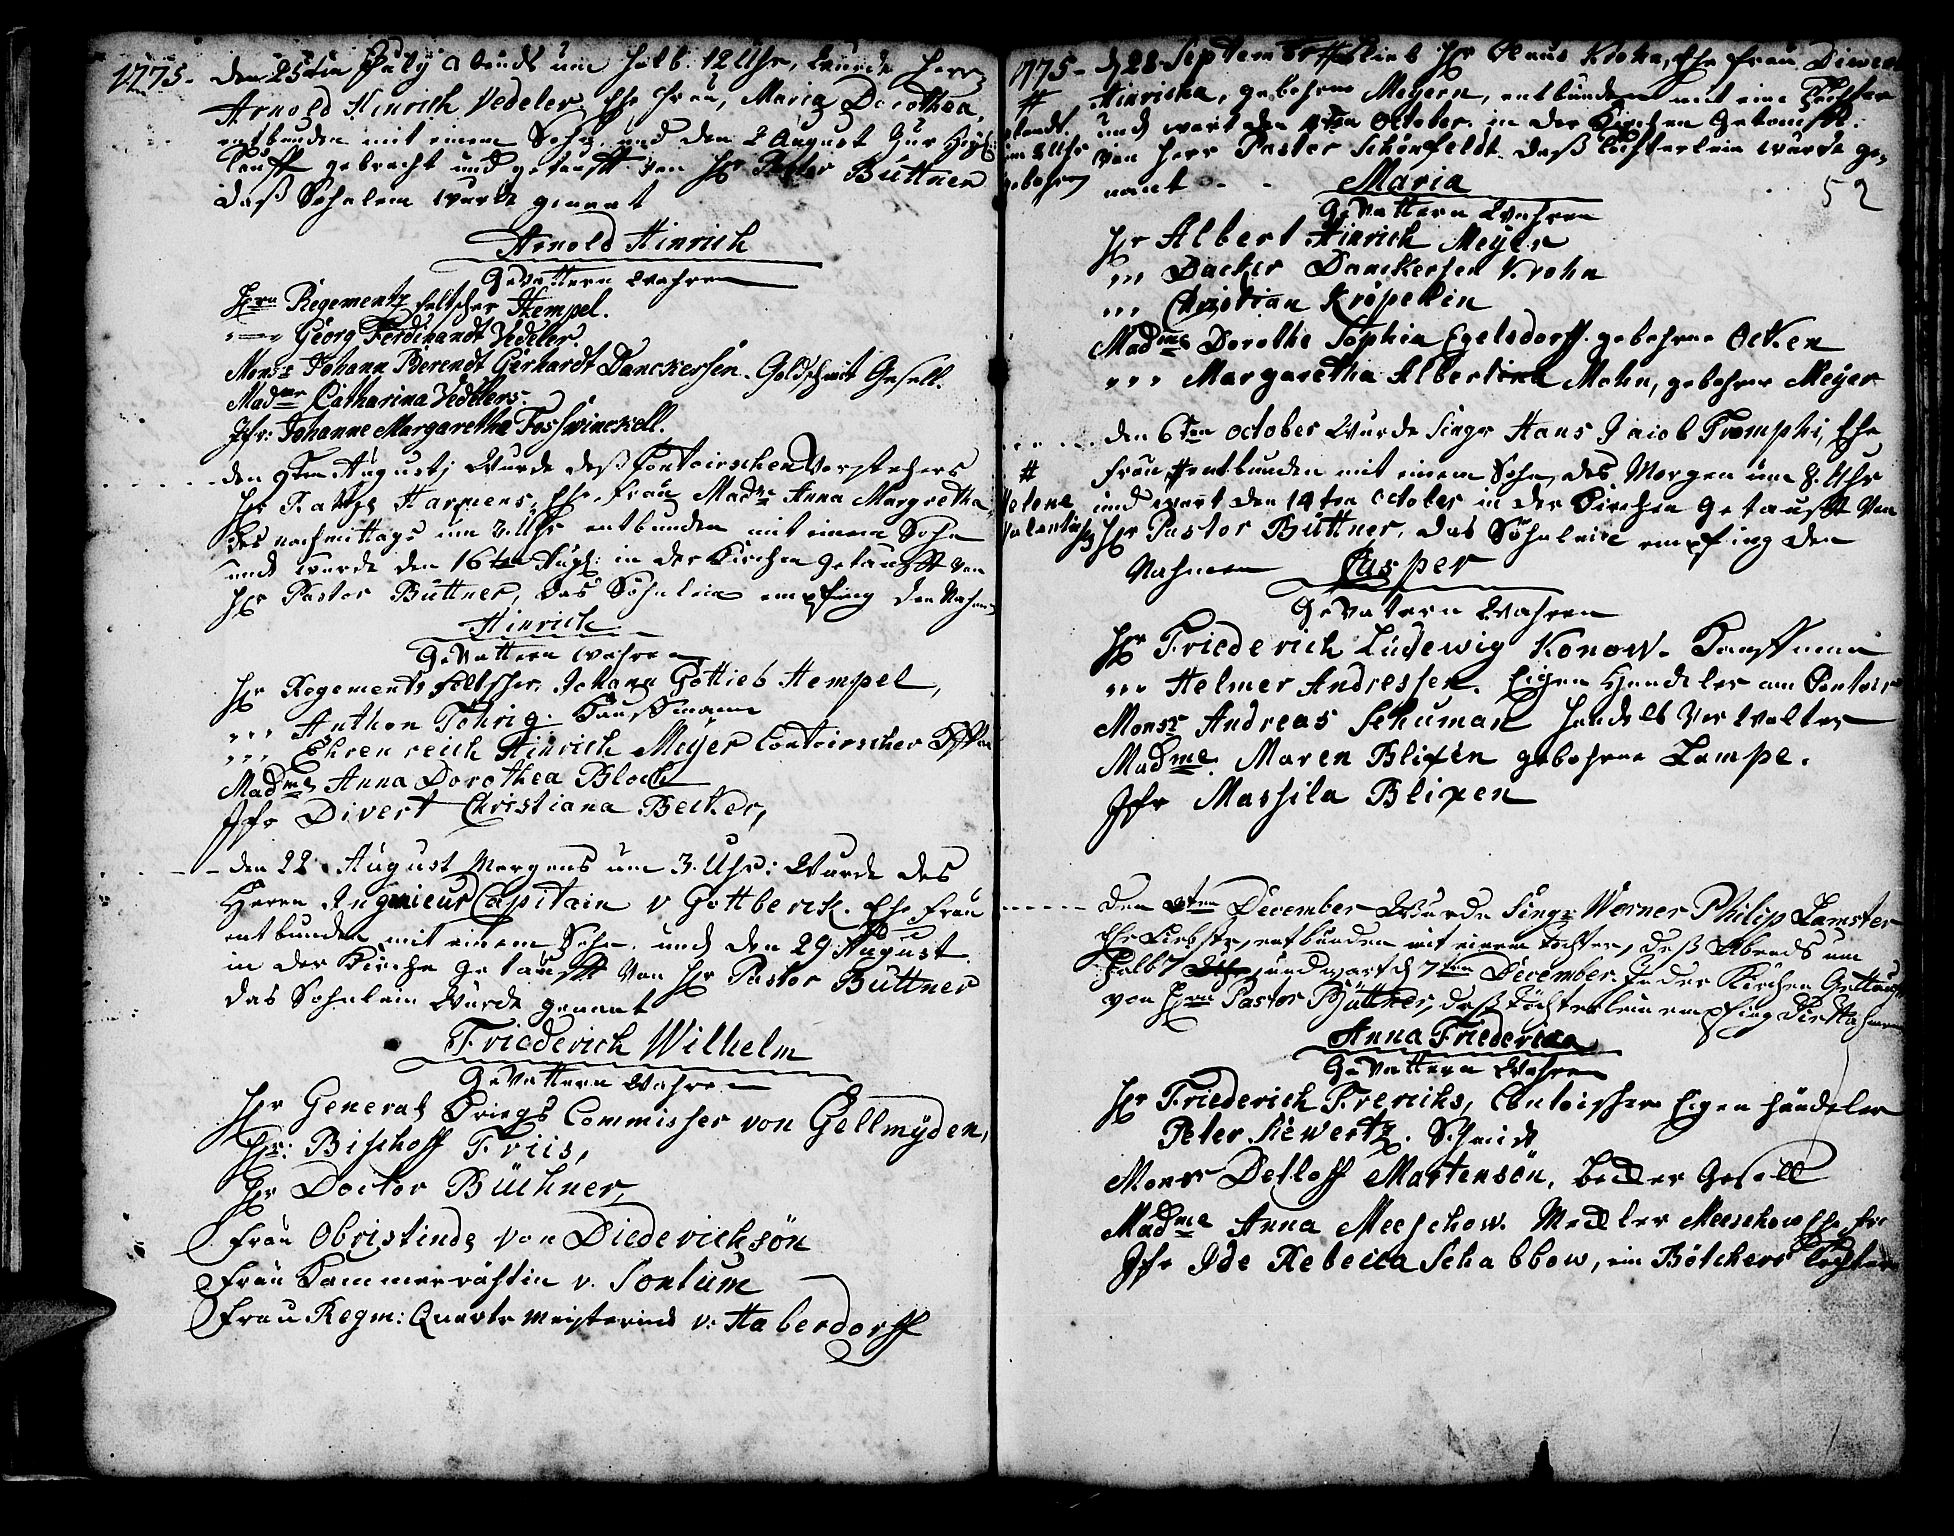 1775. den 25ten July abends um halb. 12 Uhr, wurde Herrn
Arnold Hinrich Vedeler Ehe Frau, Maria Dorothea,
entbunden mit einem Sohn, und den 2 August zur Heyl:
Tauffe gebracht und getaufft von Hr Pastor Büttner
daß Söhnlein wurde genant
Arnold Hinrich
Gevattern Wahren
Hrn Regementz feltscher Hempel.
Georg Ferdinandt Vedeler.
Monsr Johann Berendt Gerhardt Danckerssen. Goldschmit Gesell.
Madme Catharina Vedelers.
Jfr: Johanne Margaretha Fosswinckell.
den 9ten Augustj wurde deß Contoirschen Vorstehers
Hr Harmens, Ehe Frau Madme Anna Margretha
des nachmittags um 3. Uhr entbunden mit einem Sohn
und wurde den 16ten Aug: in der Kirchen getaufft von
Hr Pastor Büttner, das Söhnlein empfing den Nahmen
Hinrich
Gevattern wahren
Hr Regements feltscher, Johann Gottlieb Hempel,
,,, Anthon Föhrig. Kauffmann
,,, Ehrenreich Hinrich Meyer Contoirscher
Madme Anna Dorothea Block
Jfr Divert Christiana Becker,
den 22 August Morgens um 3. Uhr: Wurde des
Herrn Ingenieur Capitain v Gottberck. Ehe Frau
entbunden mit einem Sohn. und den 29 August.
in der Kirche getaufft von Hr Pastor Büttner
das Söhnlein Wurde genant
Friederich Wilhelm
Gevattern Wahren
Hr General Kriegs Commisser von Gellmÿden,
Hr: Bischoff Friis,
Hr Doctor Büchner,
Frau Obristinde von Diedericksön
Frau Kammerräthin v. Sontum
Frau Regm: Quartr Meisterinde v: Haberdorff
1775. d 28 Septembr Hr Claus Krohn, Ehe Frau Diwert
Hinricka, gebohrne Meyern, entbunden mit eine Tochter
und wart den October in der Kirchen Getaufft.
von Herr Pastor Schönfeldt. daß Töchterlein wurde ge-
nant - - Maria
52
#
um 2 Uhr
gebohren
Gevattern Wahren
Hr Albert Hinrich Meyer
,,, Danckersen Krohn
,,, Christian Kröpelin
Madme Dorothe Sophia Egelsdorff. gebohrne Ocken
,,, Margaretha Albertina Mohn, gebohren Meyer
den 6ten October Wurde Singr Hans Jacob Tromphi, Ehe
Frau # entbunden mit einem Sohn, des Morgen um 8. Uhr
und wart den 14ten October in der Kirchen Getaufft von
Hr Pastor Büttner, das Söhnlein empfing den
Nahmen Casper
#
Helene
Valentin
Gevatern Wahren
Hr Friederich Ludewig Konow. Kauffmann
,,, Helmer Andressen. Eigen Handeler am Contoir
Monsr Andreas Schuman Handels Verwalter
Madme. Maren Blixen gebohrne Lampe.
Jfr Massila Blixen
Den December Wurde Singr Werner Philip Lamster
Ehe Liebste, entbunden mit einem Tochter, deß Abends um
halb 7 Uhr, und wart d 7ten December in der Kirchen Getaufft
von Hrn Pastor Büttner, daß Töchterlein empfing die Nahmen
Anna Friederica
Gevattern Wahren
Hr Friederich Frerichs, Contoischer Eigen händeler
Peter Siewertz. Schmidt
Monsr Detloff Martensön, Becker Gesell
Madme Anna Meeschow. Meckler Meeschow Ehe Fr
Jfr Ide Rebecca Schabbow, ein Bötchers Tochter